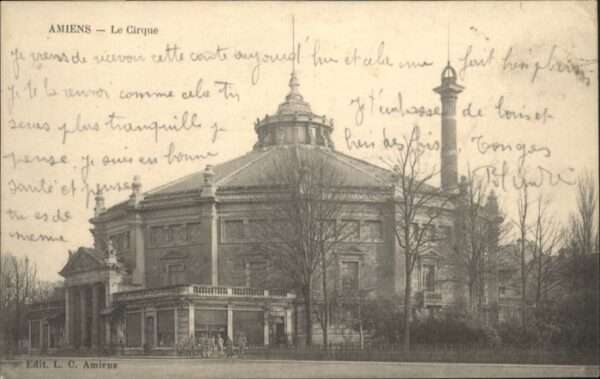 AMIENS — Le Cirque
Je viens de recevoir cette carte aujourd'hui et cela me fait bien plaisir
Je te la envoi comme cela tu
seras plus tranquille je
pense, je suis en bonne
santé et pense
tu es de
meme
Je t'embrasse de loin et
bien des fois,
Edit L. C. Amiens